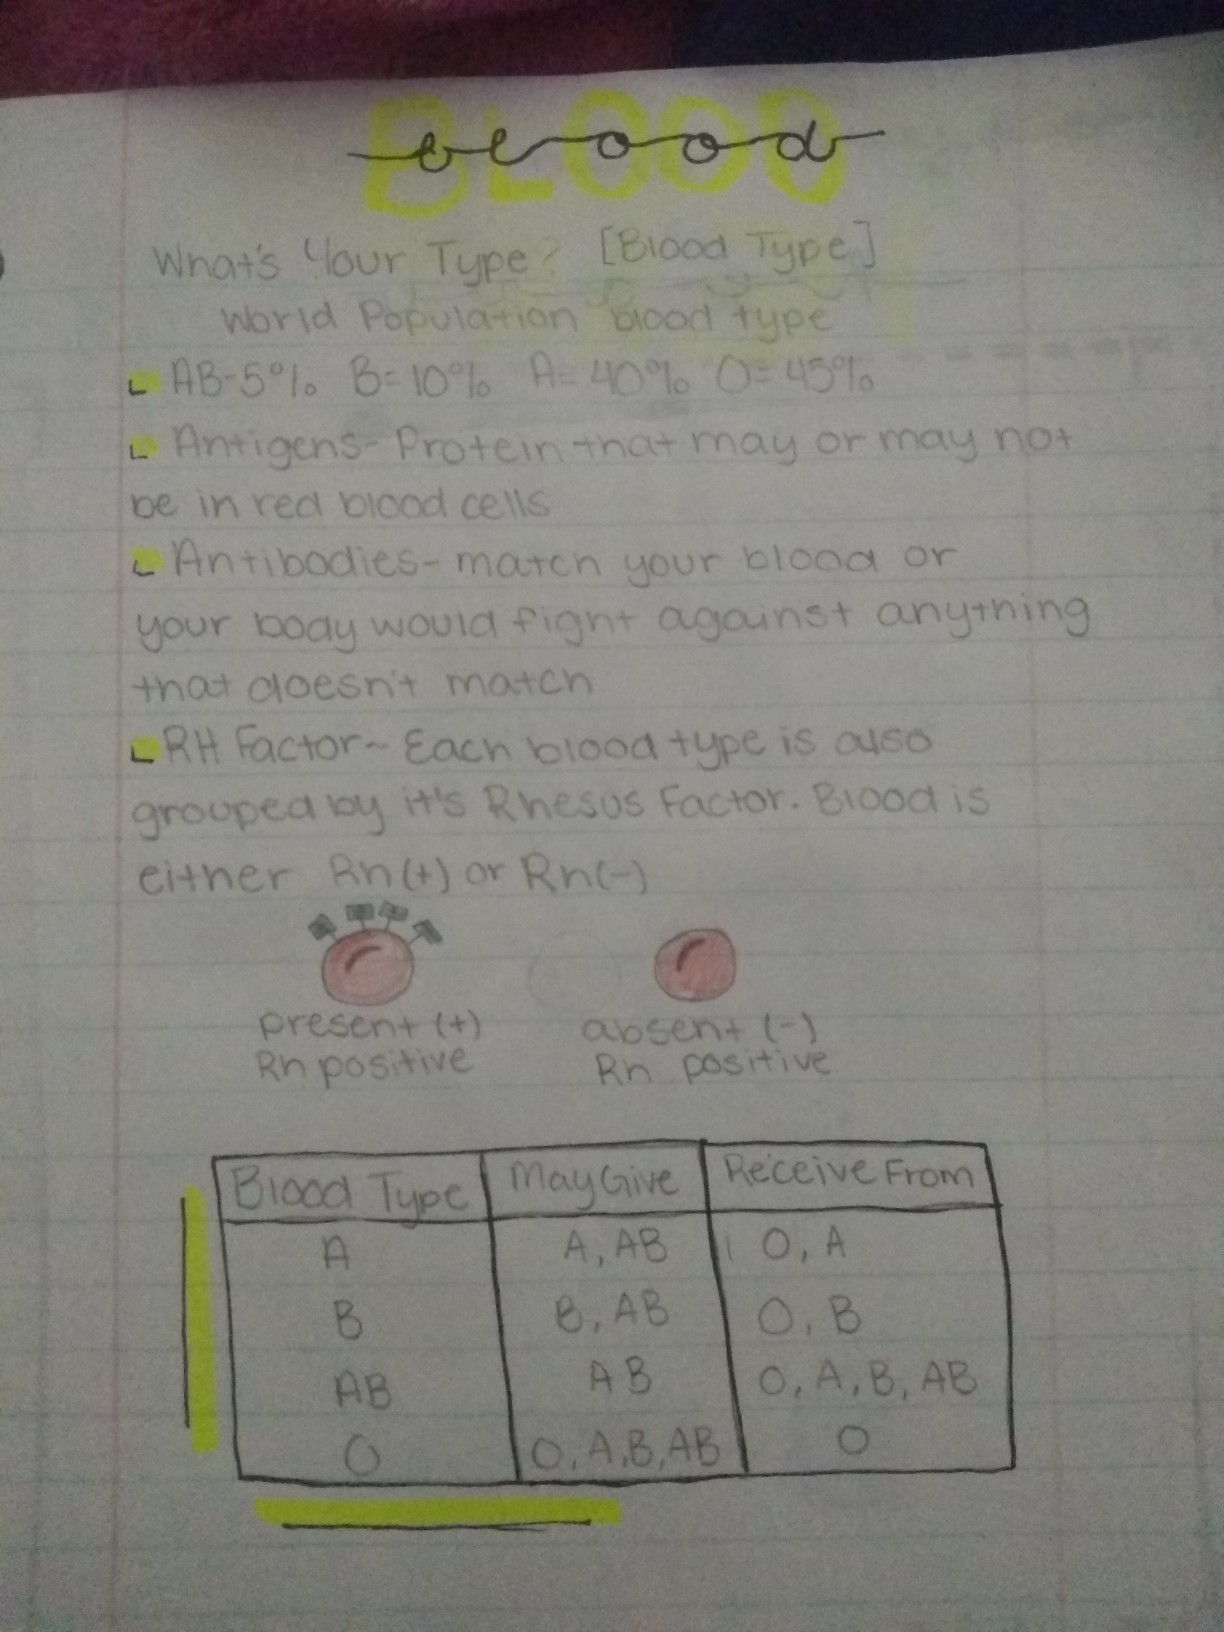 BLOOD
blood
What's Your Type? [Blood Type]
World Population blood type
AB-5% B=10% A=40% O=45%
Antigens- Protein that may or may not
be in red blood cells
Antibodies- match your blood or
your body would fight against anything
that doesn't match
RH Factor- Each blood type is also
grouped by it's Rhesus Factor. Blood is
either Rh(+) or Rh(-)
present (+) absent (-)
Rh positive Rh positive
Blood Type May Give Receive From
A A, AB O, A
B B, AB O, B
AB AB O, A, B, AB
O O, A, B, AB O